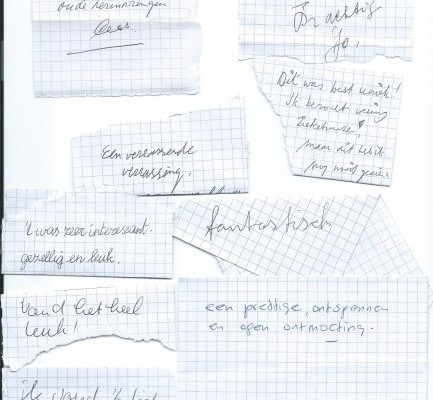 oude herinneringen
Cees.
Prachtig
Jo.
Dit was best uniek!
Ik bezoek weinig
maar dit
Een verrassende
verrassing.
't was zeer interessant.
gezellig en leuk.
fantastisch
Vond het heel
leuk!
een prettige, ontspannen
en open ontmoeting.
ik vond 't